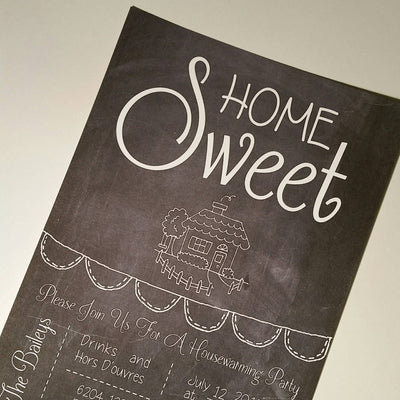 HOME
Sweet
Please Join Us For A Housewarming Party
The Baileys
Drinks and
Hors D'ouvres
6204
July 12,
at